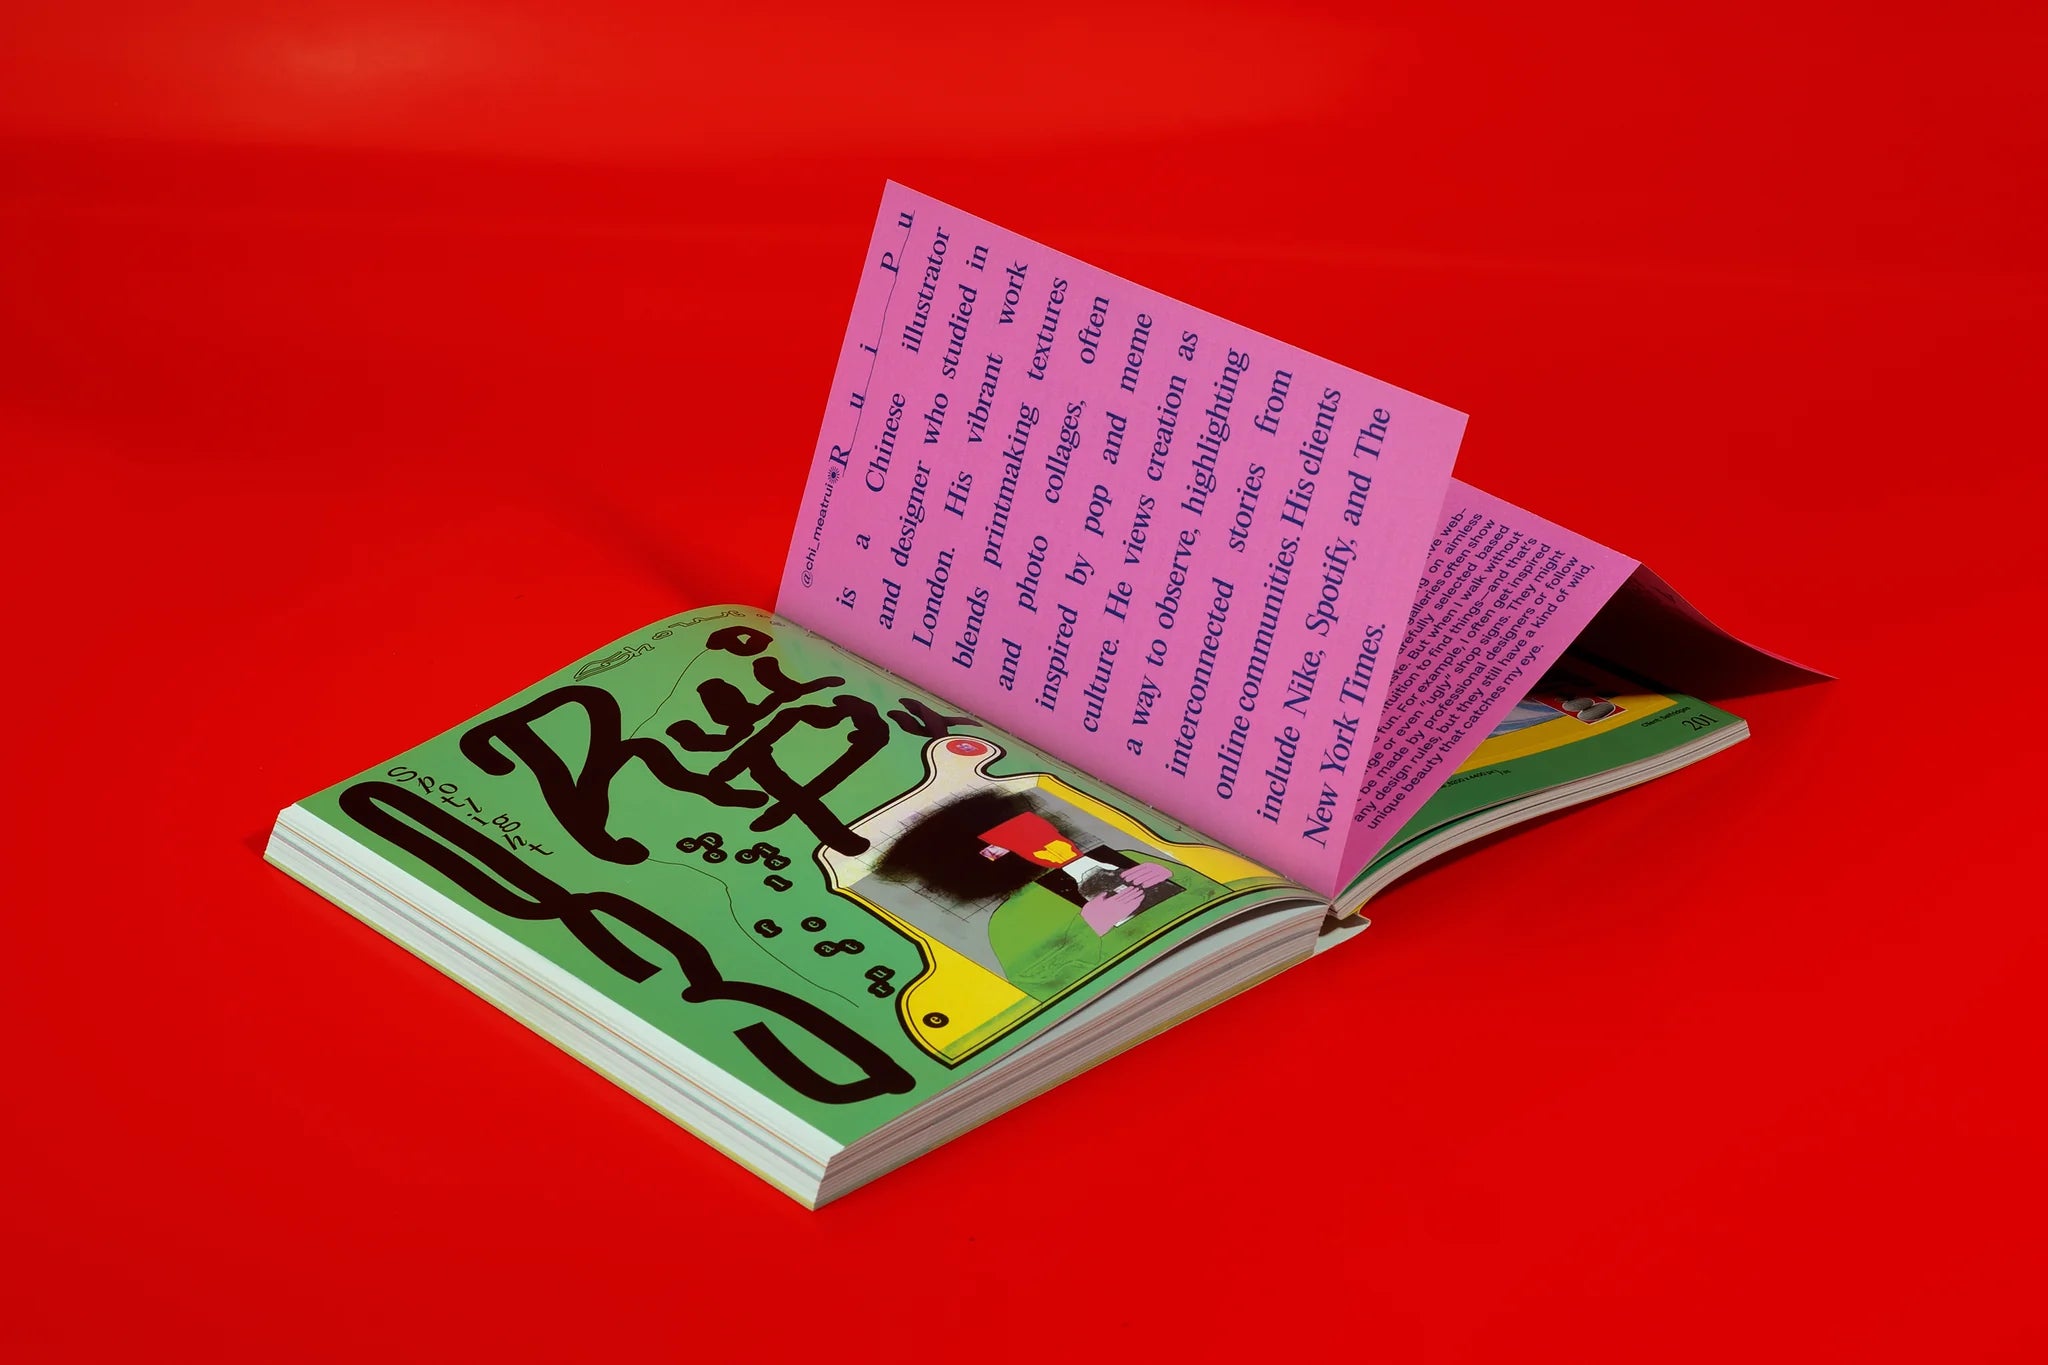 Rui Pu
Spotlight
special
feature
@chi_meatrui
Rui Pu
is a Chinese illustrator
and designer who studied in
London. His vibrant work
blends printmaking textures
and photo collages, often
inspired by pop and meme
culture. He views creation as
a way to observe, highlighting
interconnected stories from
online communities. His clients
include Nike, Spotify, and The
New York Times.
web-
on aimless
galleries often show
carefully selected based
But when I walk without
intuition to find things—and that's
fun. For example, I often get inspired
or even "ugly" shop signs. They might
be made by professional designers or follow
any design rules, but they still have a kind of wild,
unique beauty that catches my eye.
201